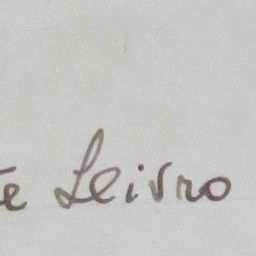 te Leivro